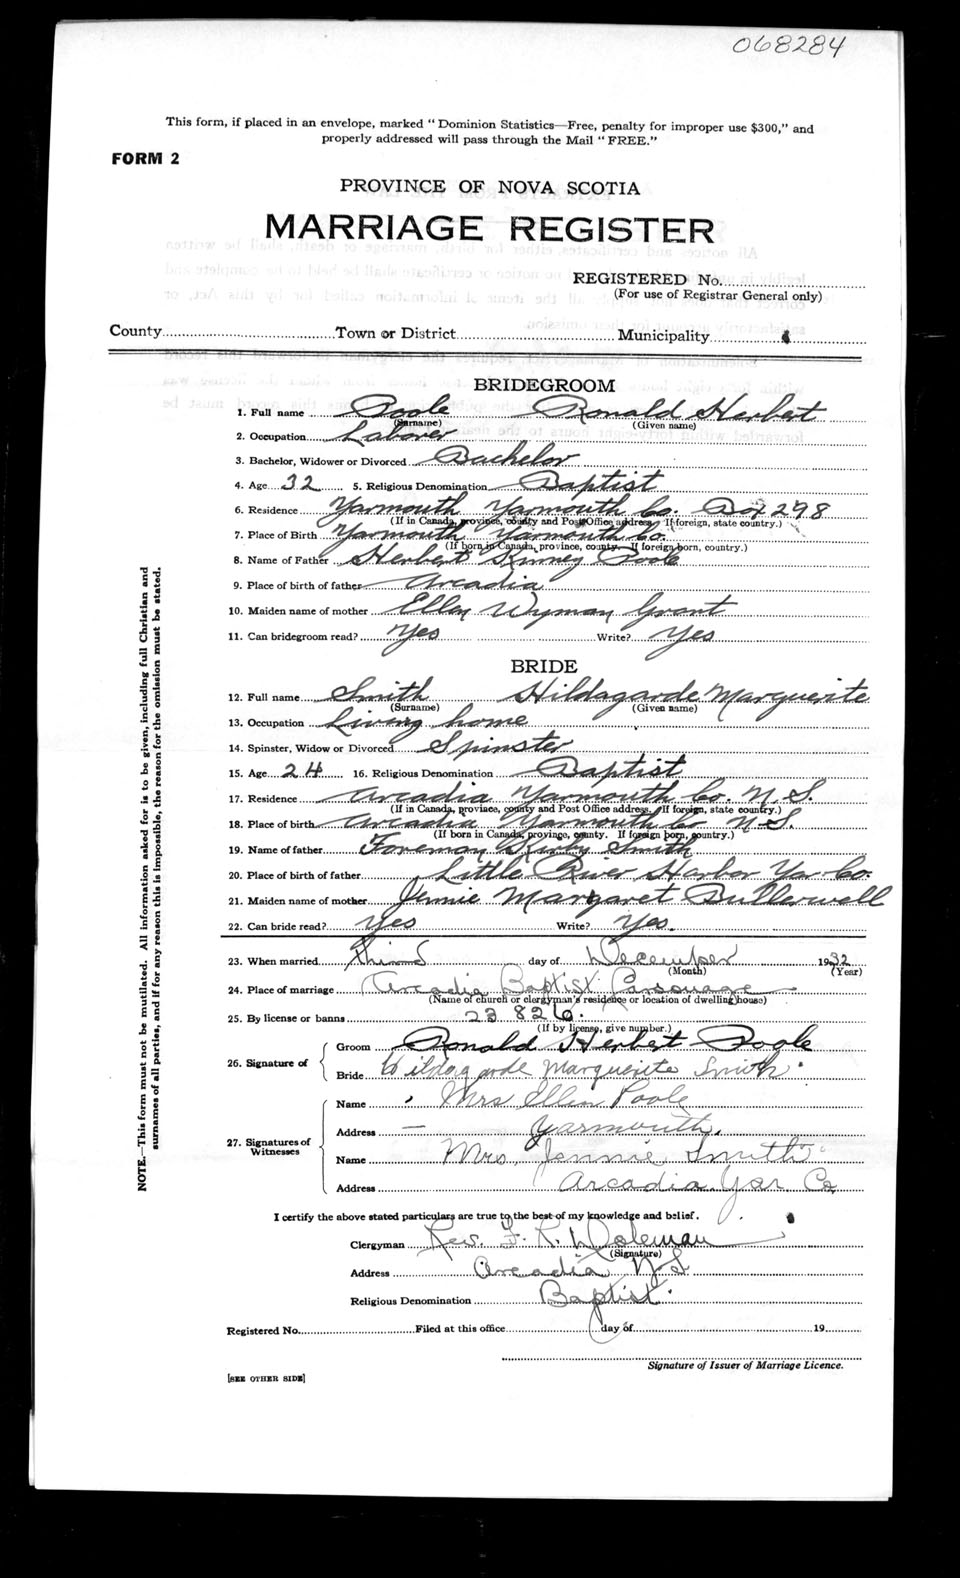 068284
This form, if placed in an envelope, marked "Dominion Statistics—Free, penalty for improper use $300," and
properly addressed will pass through the Mail "FREE."
FORM 2
PROVINCE OF NOVA SCOTIA
MARRIAGE REGISTER
REGISTERED No.
(For use of Registrar General only)
County Town or District Municipality
BRIDEGROOM
1. Full name Poole Ronald Herbert
(Surname) (Given name)
2. Occupation Laborer
3. Bachelor, Widower or Divorced Bachelor
4. Age 32 5. Religious Denomination Baptist
6. Residence Yarmouth Yarmouth Co. Box 298
(If in Canada, province, county and Post Office address. If foreign, state country.)
7. Place of Birth Yarmouth Yarmouth Co.
(If born in Canada, province, county. If foreign born, country.)
8. Name of Father Herbert Kinney Poole
9. Place of birth of father Arcadia
10. Maiden name of mother Ellen Wyman Grant
11. Can bridegroom read? Yes Write? Yes
BRIDE
12. Full name Smith Hildagarde Marguerite
(Surname) (Given name)
13. Occupation Living home
14. Spinster, Widow or Divorced Spinster
15. Age 24 16. Religious Denomination Baptist
17. Residence Arcadia Yarmouth Co. N.S.
(If in Canada, province, county and Post Office address. If foreign, state country.)
18. Place of birth Arcadia Yarmouth Co N.S.
(If born in Canada, province, county. If foreign born, country.)
19. Name of father Foreman Kirby Smith
20. Place of birth of father Little River Harbor Yar. Co.
21. Maiden name of mother Jennie Margaret Bullerwell
22. Can bride read? Yes Write? Yes.
23. When married third day of December 1932
(Month) (Year)
24. Place of marriage Arcadia Baptist Parsonage
(Name of church or clergyman's residence or location of dwelling house)
25. By license or banns 23826.
(If by license, give number.)
26. Signature of
Groom Ronald Herbert Poole
Bride Hildagarde Marguerite Smith.
27. Signatures of Witnesses
Name Mrs Ellen Poole
Address Yarmouth.
Name Mrs. Jennie Smith
Address Arcadia Yar Co
I certify the above stated particulars are true to the best of my knowledge and belief.
Clergyman Rev. F. R.
(Signature)
Address Arcadia N.S.
Religious Denomination Baptist.
Registered No. Filed at this office day of 19
Signature of Issuer of Marriage Licence.
[SEE OTHER SIDE]
NOTE.—This form must not be mutilated. All information asked for is to be given, including full Christian and
surnames of all parties, and if for any reason this is impossible, the reason for the omission must be stated.